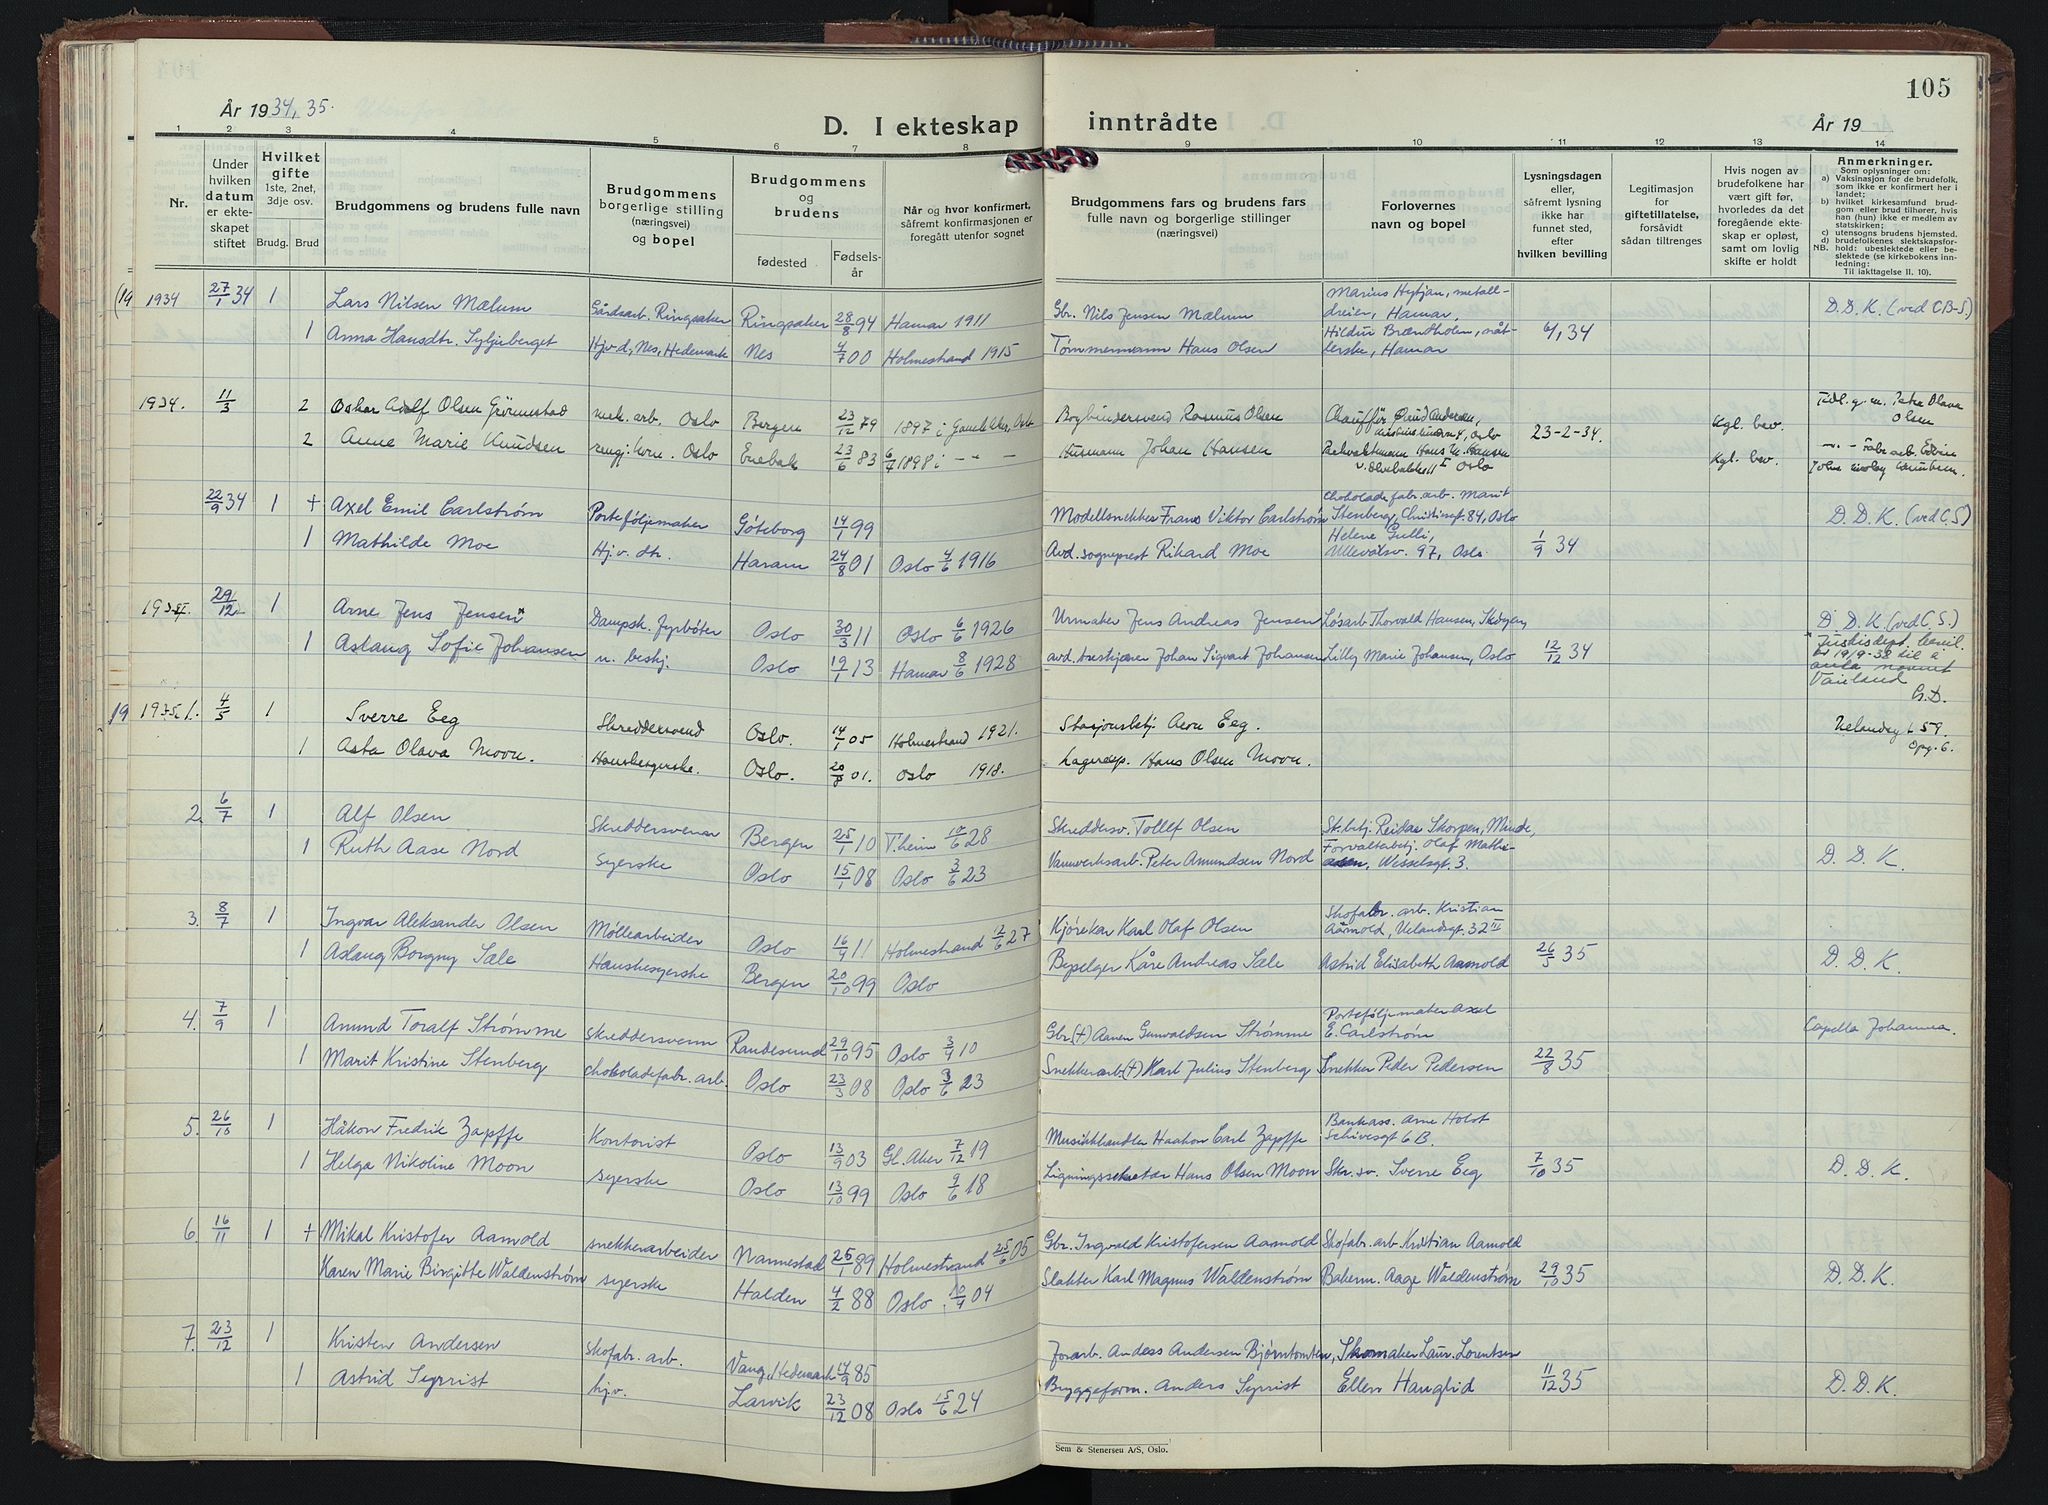 105
År 1934, 35.
D. I ekteskap inntrådte
År 19
1 2 3 4 5 6 7 8 9 10 11 12 13 14
Nr.
Under hvilken datum er ekteskapet stiftet
Hvilket gifte 1ste, 2net, 3dje osv.
Brudg. Brud
Brudgommens og brudens fulle navn
Brudgommens borgerlige stilling (næringsvei) og bopel
Brudgommens og brudens
fødested
Fødselsår
Når og hvor konfirmert, såfremt konfirmasjonen er foregått utenfor sognet
Brudgommens fars og brudens fars fulle navn og borgerlige stillinger (næringsvei)
Forlovernes navn og bopel
Lysningsdagen eller, såfremt lysning ikke har funnet sted, efter hvilken bevilling
Legitimasjon for giftetillatelse, forsåvidt sådan tiltrenges
Hvis nogen av brudefolkene har vært gift før, hvorledes da det foregående ekteskap er opløst, samt om lovlig skifte er holdt
Anmerkninger.
Som oplysninger om:
a) Vaksinasjon for de brudefolk, som ikke er konfirmert her i landet;
b) hvilket kirkesamfund brudgom eller brud tilhører, hvis han (hun) ikke er medlem av statskirken;
c) utensogns brudens hjemsted.
d) brudefolkenes slektskapsforhold: ubeslektede eller beslektede (se kirkebokens innledning:
NB. Til iakttagelse II. 10).
(19 1934 27/1 34 1 Lars Nilsen Mælum Gårdsarb. Ringsaker Ringsaker 28/8 94 Hamar 1911 Gbr. Nils Jensen Mælum Marius Hybjan, metalldreier, Hamar, D. D. K. (ved C.B-S.)
1 Anna Hansdtr. Syljuberget Hjv.d, Nes, Hedemark Nes 4/7 00 Holmestrand 1915 Tømmermann Hans Olsen Hildur Brændholen, Hamar 6/1 34
1934. 11/3 2 Oskar Adolf Olsen Grørnestad mek. arb. Oslo Bergen 23/12 79 1897 i Bogbindersvend Rasmus Olsen Chauffør Oslo 23-2-34. Kgl. bev. Tidl. g. m. Petra Olava Olsen
2 Anne Marie Knudsen rengj. kone. Oslo Enebak 23/6 83 6/7 1898 i — — Husmann Johan Hansen Hans M. Hansen Oslo Kgl. bev. —„— Fabr. arb. Edvin Johan Knudsen.
22/9 34 1 + Axel Emil Carlstrøm Porteføljemaker Göteborg 14/1 99 Modellsnekker Frans Viktor Carlstrøm Chokoladefabr. arb. Marit Stenberg, Christiesgt 84, Oslo D. D. K. (ved C.S)
1 Mathilde Moe Hjv. dtr. Haram 24/8 01 Oslo 4/6 1916 Avd. sogneprest Rikard Moe Helene Gulli, Ullevålsv. 97, Oslo. 1/9 34
29/12 1 Arne Jens Jensen* Dampsk. fyrbøter Oslo 30/3 11 Oslo 6/6 1926 Urmaker Jens Andreas Jensen Løsarb. Thorvald Hansen, Skøyen, D. D. K. (ved C.S.)
1 Aslaug Sofie Johansen u. beskj. Oslo 19/1 13 Hamar 8/6 1928 avd. Johan Sigvart Johansen Lilly Marie Johansen, Oslo 12/12 34 * Justisdept. bevil. av 19/9-38 til å anta navnet Vaieland G.D.
19 1935. 1. 4/5 1 Sverre Eeg Skreddersvend Oslo. 14/1 05 Holmestrand 1921. Stasjonsbetj. Aern Eeg. Uelandsg t 59. Opg. 6.
1 Asta Olava Moon. Hansbergerske. Oslo. 20/8 01. Oslo 1918. Lagereksp. Hans Olsen Moon.
2. 6/7 1 Alf Olsen Skreddersvenn Bergen 25/1 10 T.heim 10/6 28 Skreddersv. Tollef Olsen Sk.betj. Reidar Skorpen, Minde,
1 Ruth Aase Nord syerske Oslo 15/1 08 Oslo 3/6 23 Vannverksarb. Peter Amundsen Nord Forvaltarbetj. Olaf Mathiasen, Wesselsgt. 3. D. D. K.
3. 8/7 1 Ingvar Aleksander Olsen Møllearbeider Oslo 16/4 11 Holmestrand 12/6 27 Kjørekar Karl Olaf Olsen Skofabr. arb. Kristian Aamold, Uelandsgt. 32 III
1 Aslaug Borgny Sæle Hanskesyerske Bergen 20/10 99 Oslo Bypelger Kåre Andreas Sæle Astrid Elisabeth Aamold 26/5 35 D. D. K.
4. 7/9 1 Amund Toralf Strømme skreddersvenn Randesund 29/10 95 Oslo 3/4 10 Gbr. (+) Aanen Gunvaldsen Strømme Porteføljemaker Axel E. Carlstrøm Capella Johannea.
1 Marit Kristine Stenberg chokoladefabr. arb. Oslo 23/3 08 Oslo 3/6 23 Snekkerarb (+) Karl Julius Stenberg Snekker Peder Pedersen 22/8 35
5. 26/10 1 Håkon Fredrik Zapffe Kontorist Oslo 13/9 03 Gl. Aker 7/12 19 Musikkhandler Haakon Carl Zapffe Bankass. Arne Holst Schivesgt 6 B.
1 Helga Nikoline Moon syerske Oslo 13/10 99 Oslo 9/6 18 Ligningssekretær Hans Olsen Moon Skr. sv. Sverre Eeg 7/10 35 D. D. K
6. 16/11 1 + Mikal Kristofer Aamold snekkerarbeider Nannestad 25/1 89 Holmestrand 25/6 05 Gbr. Ingvald Kristofersen Aamold Skofabr. arb. Kristian Aamold
Karen Marie Birgitte Waldenstrøm syerske Halden 4/2 88 Oslo 10/4 04 Slakter Karl Magnus Waldenstrøm Bakerm. Aage Waldenstrøm 29/10 35 D. D. K.
7. 23/12 1 Kristen Andersen skofabr. arb. Vang, Hedemark 14/9 85 Forarb. Anders Andersen Bjørntomten, Skomaker Laur. Lorentsen
1 Astrid Syrrist hjv. Larvik 23/12 08 Oslo 15/6 24 Bryggeform. Anders Syrrist Ellen Hauglid 11/12 35 D. D. K.
Sem & Stenersen A/S, Oslo.